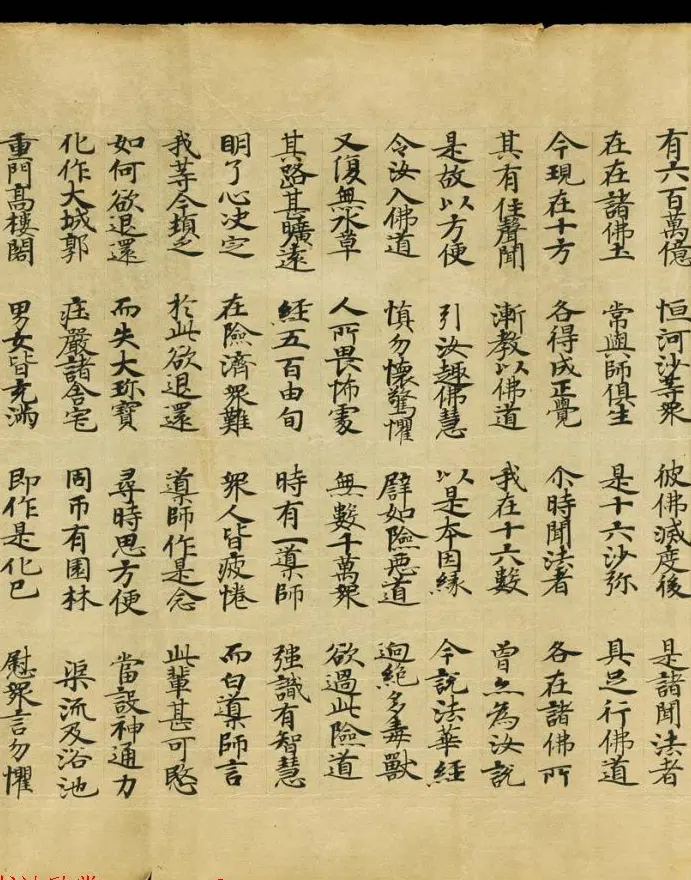 有六百萬億 恒河沙等眾 彼佛滅度後 是諸聞法者
在在諸佛土 常與師俱生 是十六沙弥 具足行佛道
今現在十方 各得成正覺 尒時聞法者 各在諸佛所
其有住聲聞 漸教以佛道 我在十六數 曾亦為汝說
是故以方便 引汝趣佛慧 以是本因緣 今說法華經
令汝入佛道 慎勿懷驚懼 譬如險惡道 迥絕多毒獸
又復無水草 人所畏怖處 無數千萬眾 欲過此險道
其路甚曠遠 經五百由旬 時有一導師 強識有智慧
明了心決定 在險濟眾難 眾人皆疲惓 而白導師言
我等今頓乏 於此欲退還 導師作是念 此輩甚可愍
如何欲退還 而失大珎寶 尋時思方便 當設神通力
化作大城郭 莊嚴諸舍宅 周帀有園林 渠流及浴池
重門高樓閣 男女皆充滿 即作是化已 慰眾言勿懼